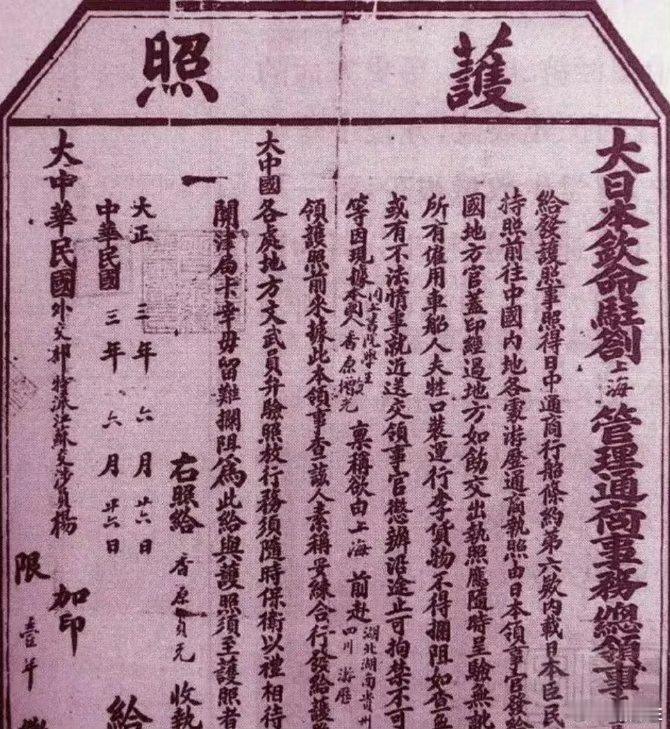 護照
大日本欽命駐劄上海管理通商事務總領事
給發護照事照得日中通商行船條約第六款內載日本臣民
持照前往中國內地各處游歷通商執照由日本領事官發給
國地方官蓋印經過地方如飭交出執照應隨時呈驗無訛
所有雇用車船人夫牲口裝運行李貨物不得攔阻如查無
或有不法情事就近送交領事官懲辦沿途止可拘禁不可
等因現據本國人同文書院學生香原 元稟稱欲由上海前赴湖北湖南貴州四川游歷
領護照前來據此本領事查該人素稱妥練合行發給護
大中國各處地方文武員弁驗照放行務須隨時保衛以禮相待
關津局卡幸毋留難攔阻為此給與護照須至護照者
一
右照給香原 元收執
大正三年六月廿六日
中華民國三年六月廿六日
大中華民國外交部特派江蘇交涉員楊
加印
給
限壹年繳